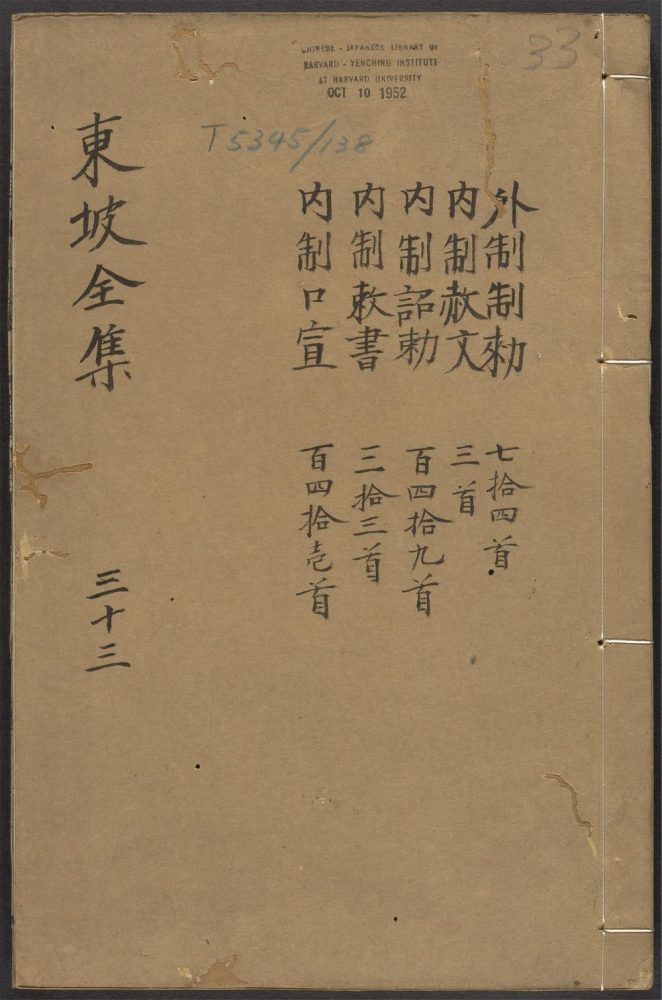 CHINESE - JAPANESE LIBRARY OF
HARVARD - YENCHING INSTITUTE
AT HARVARD UNIVERSITY
OCT 10 1952
33
T 5345/138
外制制勑 七拾四首
内制赦文 三首
内制詔勅 百四拾九首
内制敕書 三拾三首
内制口宣 百四拾壱首
東坡全集 三十三